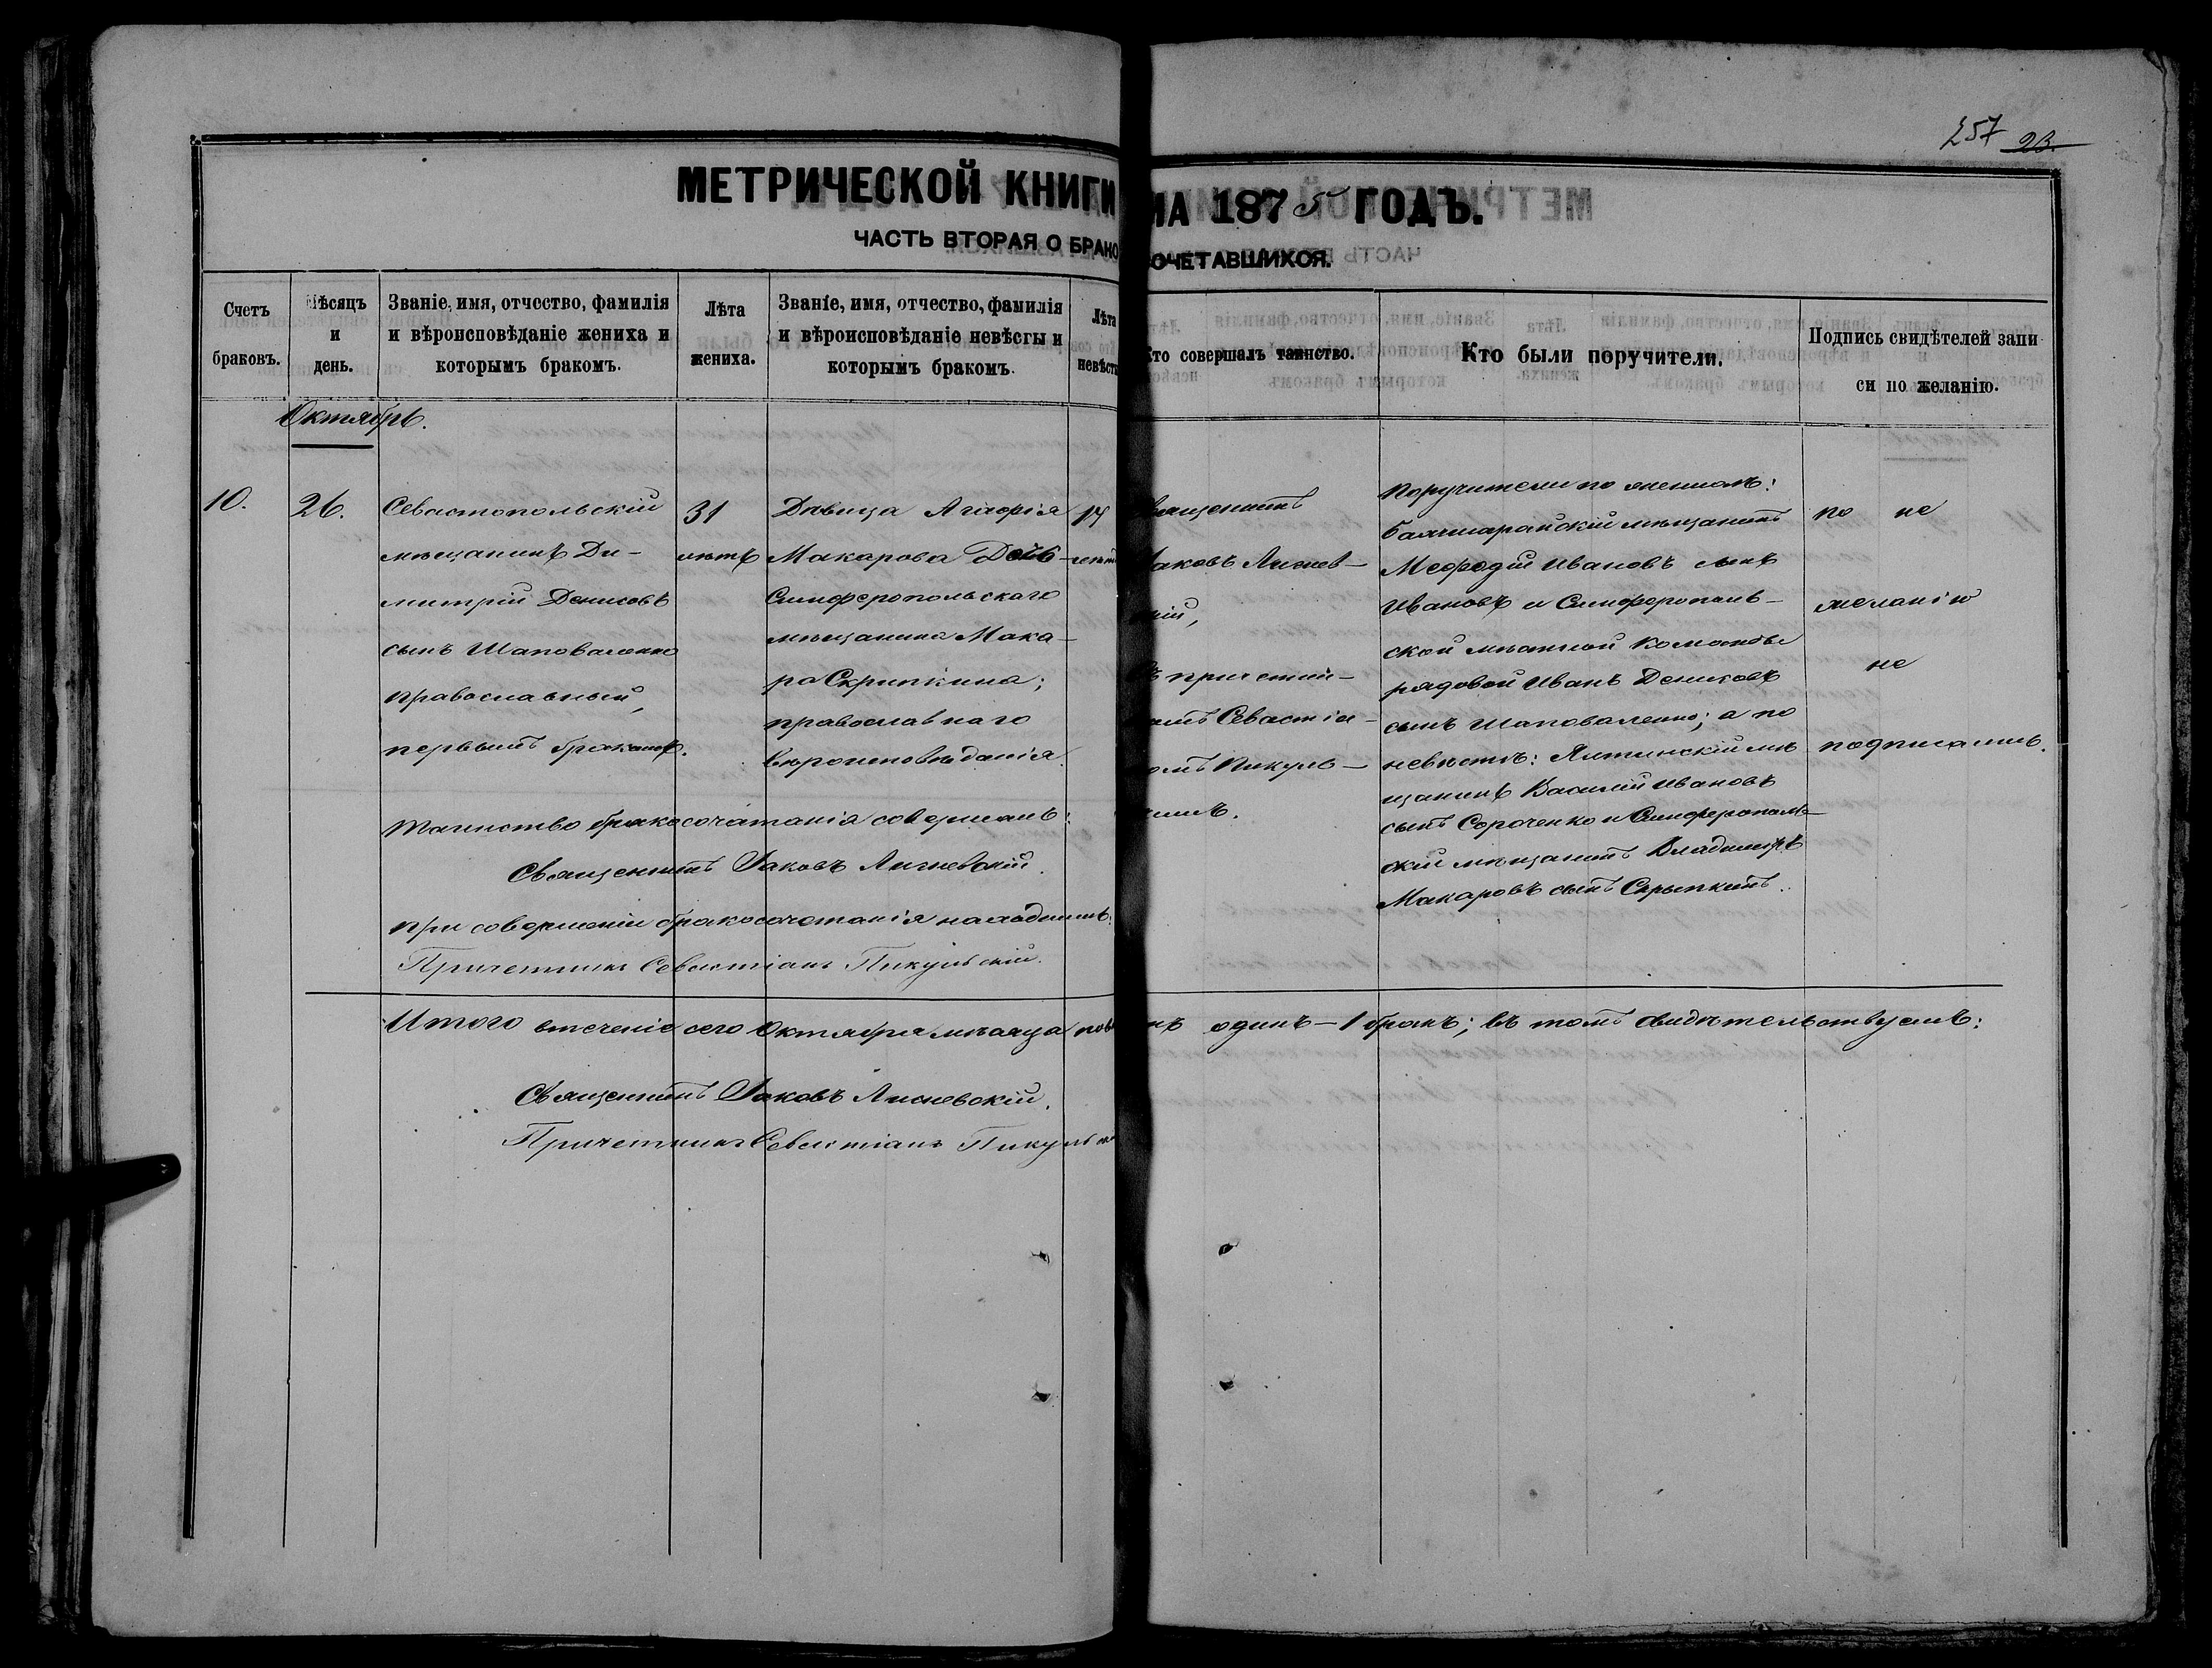 257 23.
МЕТРИЧЕСКОЙ КНИГИ НА 1875 ГОДЪ.
ЧАСТЬ ВТОРАЯ О БРАКОСОЧЕТАВШИХСЯ.
Счетъ браковъ.
Мѣсяцъ и день.
Званіе, имя, отчество, фамилія
и вѣроисповѣданіе жениха и
которымъ бракомъ.
Лѣта
жениха.
Званіе, имя, отчество, фамилія
и вѣроисповѣданіе невѣсты и
которымъ бракомъ.
Лѣта
невѣсты
Кто совершалъ таинство.
Кто были поручители.
Подпись свидѣтелей запи
си по желанію.
Октябрь.
10.
26.
Севастопольскій
мѣщанинъ Ди-
митрій Денисовъ
сынъ Шаповаленко
православный,
первымъ бракомъ.
31
лѣтъ
Дѣвица Агафія
Макарова Дочь
Симферопольскаго
мѣщанина Мака-
ра Скрипкина;
православнаго
вѣроисповѣданія.
лѣтъ
Священникъ
Іаковъ Лиснев-
скій,
съ причетни-
комъ Севастіа-
номъ Пикуль-
скимъ.
Поручители по женихѣ:
Бахчисарайскій мѣщанинъ
Меѳодій Ивановъ сынъ
Ивановъ и Симферополь-
ской мѣстной Команды
рядовой Иванъ Денисовъ
сынъ Шаповаленко; а по
невѣстѣ: Ялтинскій мѣ
щанинъ Василій Ивановъ
сынъ Сороченко и Симферополь-
скій мѣщанинъ Владиміръ
Макаровъ сынъ Скрыпкинъ.
по не
желанію
не
подписались.
Таинство бракосочатанія совершалъ:
Священникъ Іаковъ Лисневскій.
При совершеніи бракосочетанія находился:
Причетникъ Севастіанъ Пикульскій.
Итого втеченіе сего Октября мѣсяца одинъ - 1 бракъ; въ томъ свидѣтельствуемъ:
Священникъ Іаковъ Лисневскій.
Причетникъ Севастіанъ Пикульск